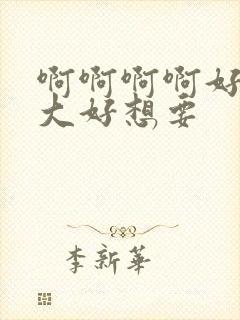 啊啊啊啊好
大好想要
李新華